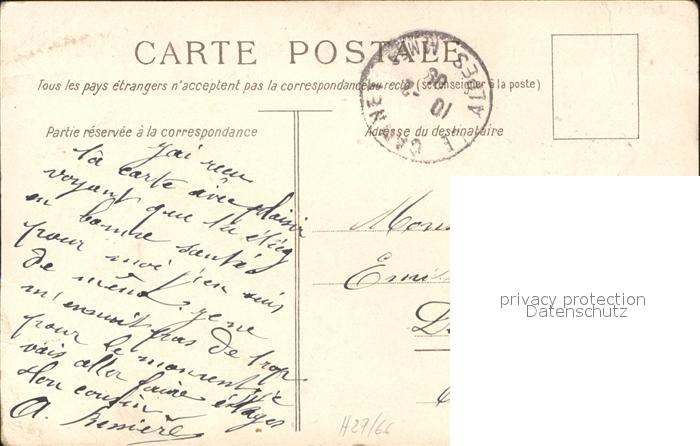 CARTE POSTALE
Tous les pays étrangers n'acceptent pas la correspondance au recto (se renseigner à la poste)
LE CANNET ALPES MMES
10
Partie réservée à la correspondance
Adresse du destinataire
J'ai reçu
ta carte avec plaisir
voyant que tu étais
en bonne santé
pour moi j'en suis
de même. je ne
m'ennuit pas de trop
pour le moment je
vais aller faire
Mon cousin
A.
Emil
privacy protection
Datenschutz
H27/66